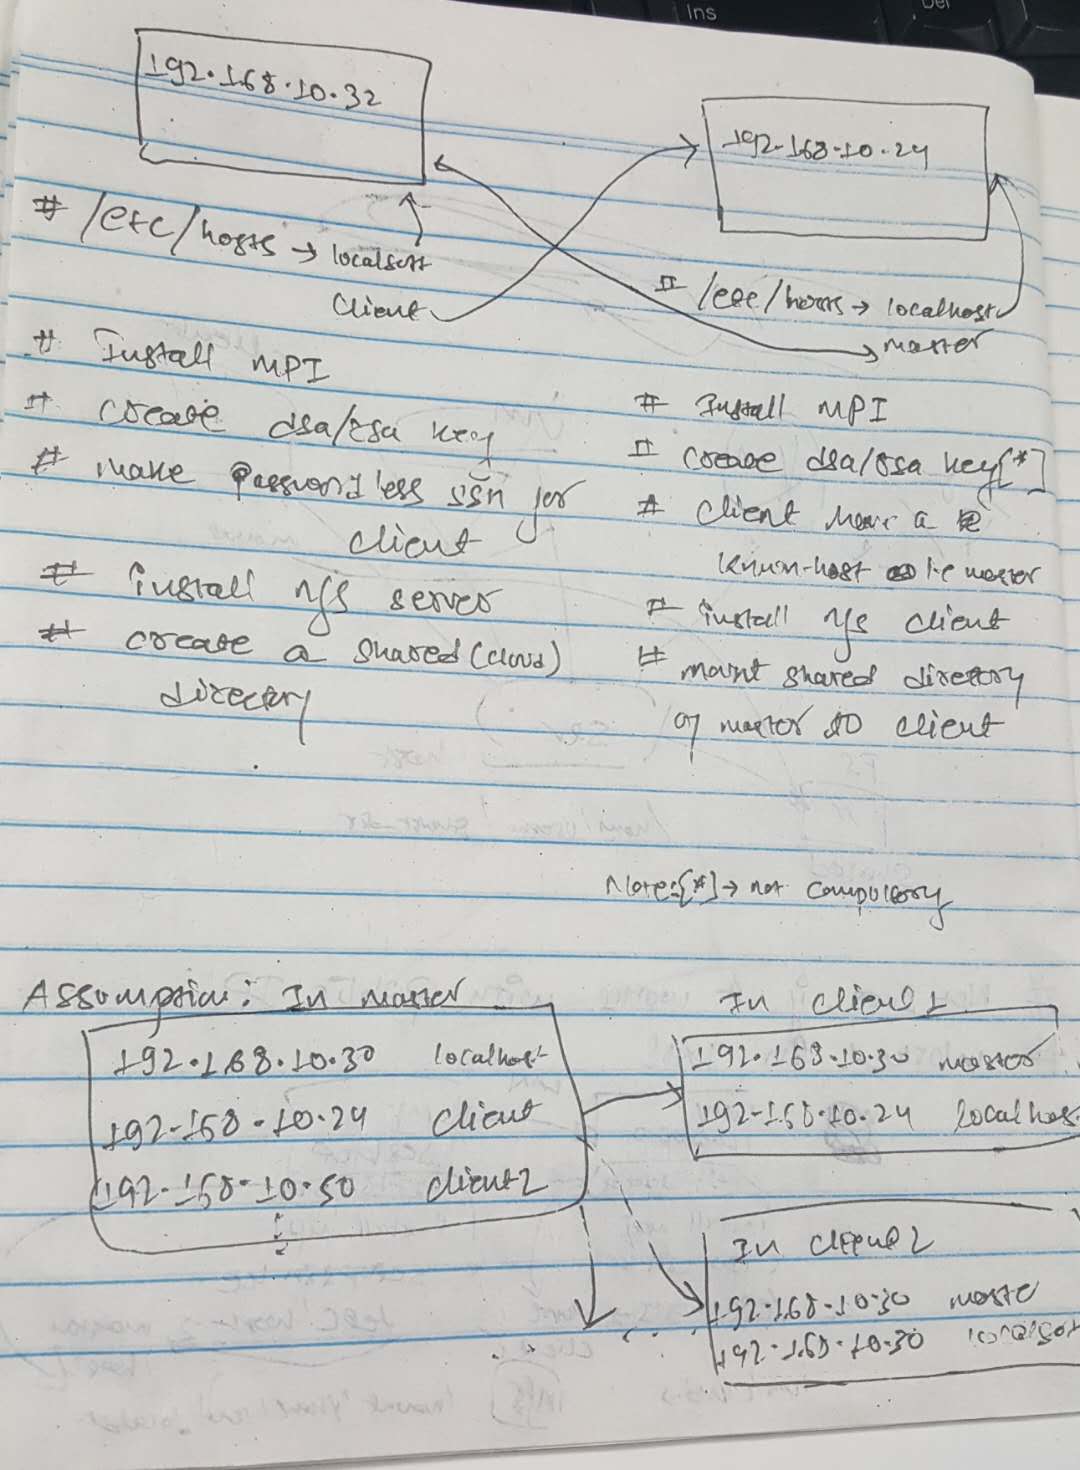 Ins
Del
192.168.10.32
# /etc/hosts → localhost
client
# Install MPI
# create dsa/rsa key
# make passwordless ssh for
client
# install nfs server
# create a shared (cloud)
directory
192.168.10.24
# /etc/hosts → localhost
master
# Install MPI
# create dsa/rsa key[*]
# client have a
known-host master
# install nfs client
# mount shared directory
of master to client
Note:[*] → not compulsory
Assumption: In master
192.168.10.30 localhost
192.168.10.24 client
192.168.10.50 client2
In client 1
192.168.10.30 master
192.168.10.24 localhost
In client 2
192.168.10.30 master
192.168.10.30 localhost